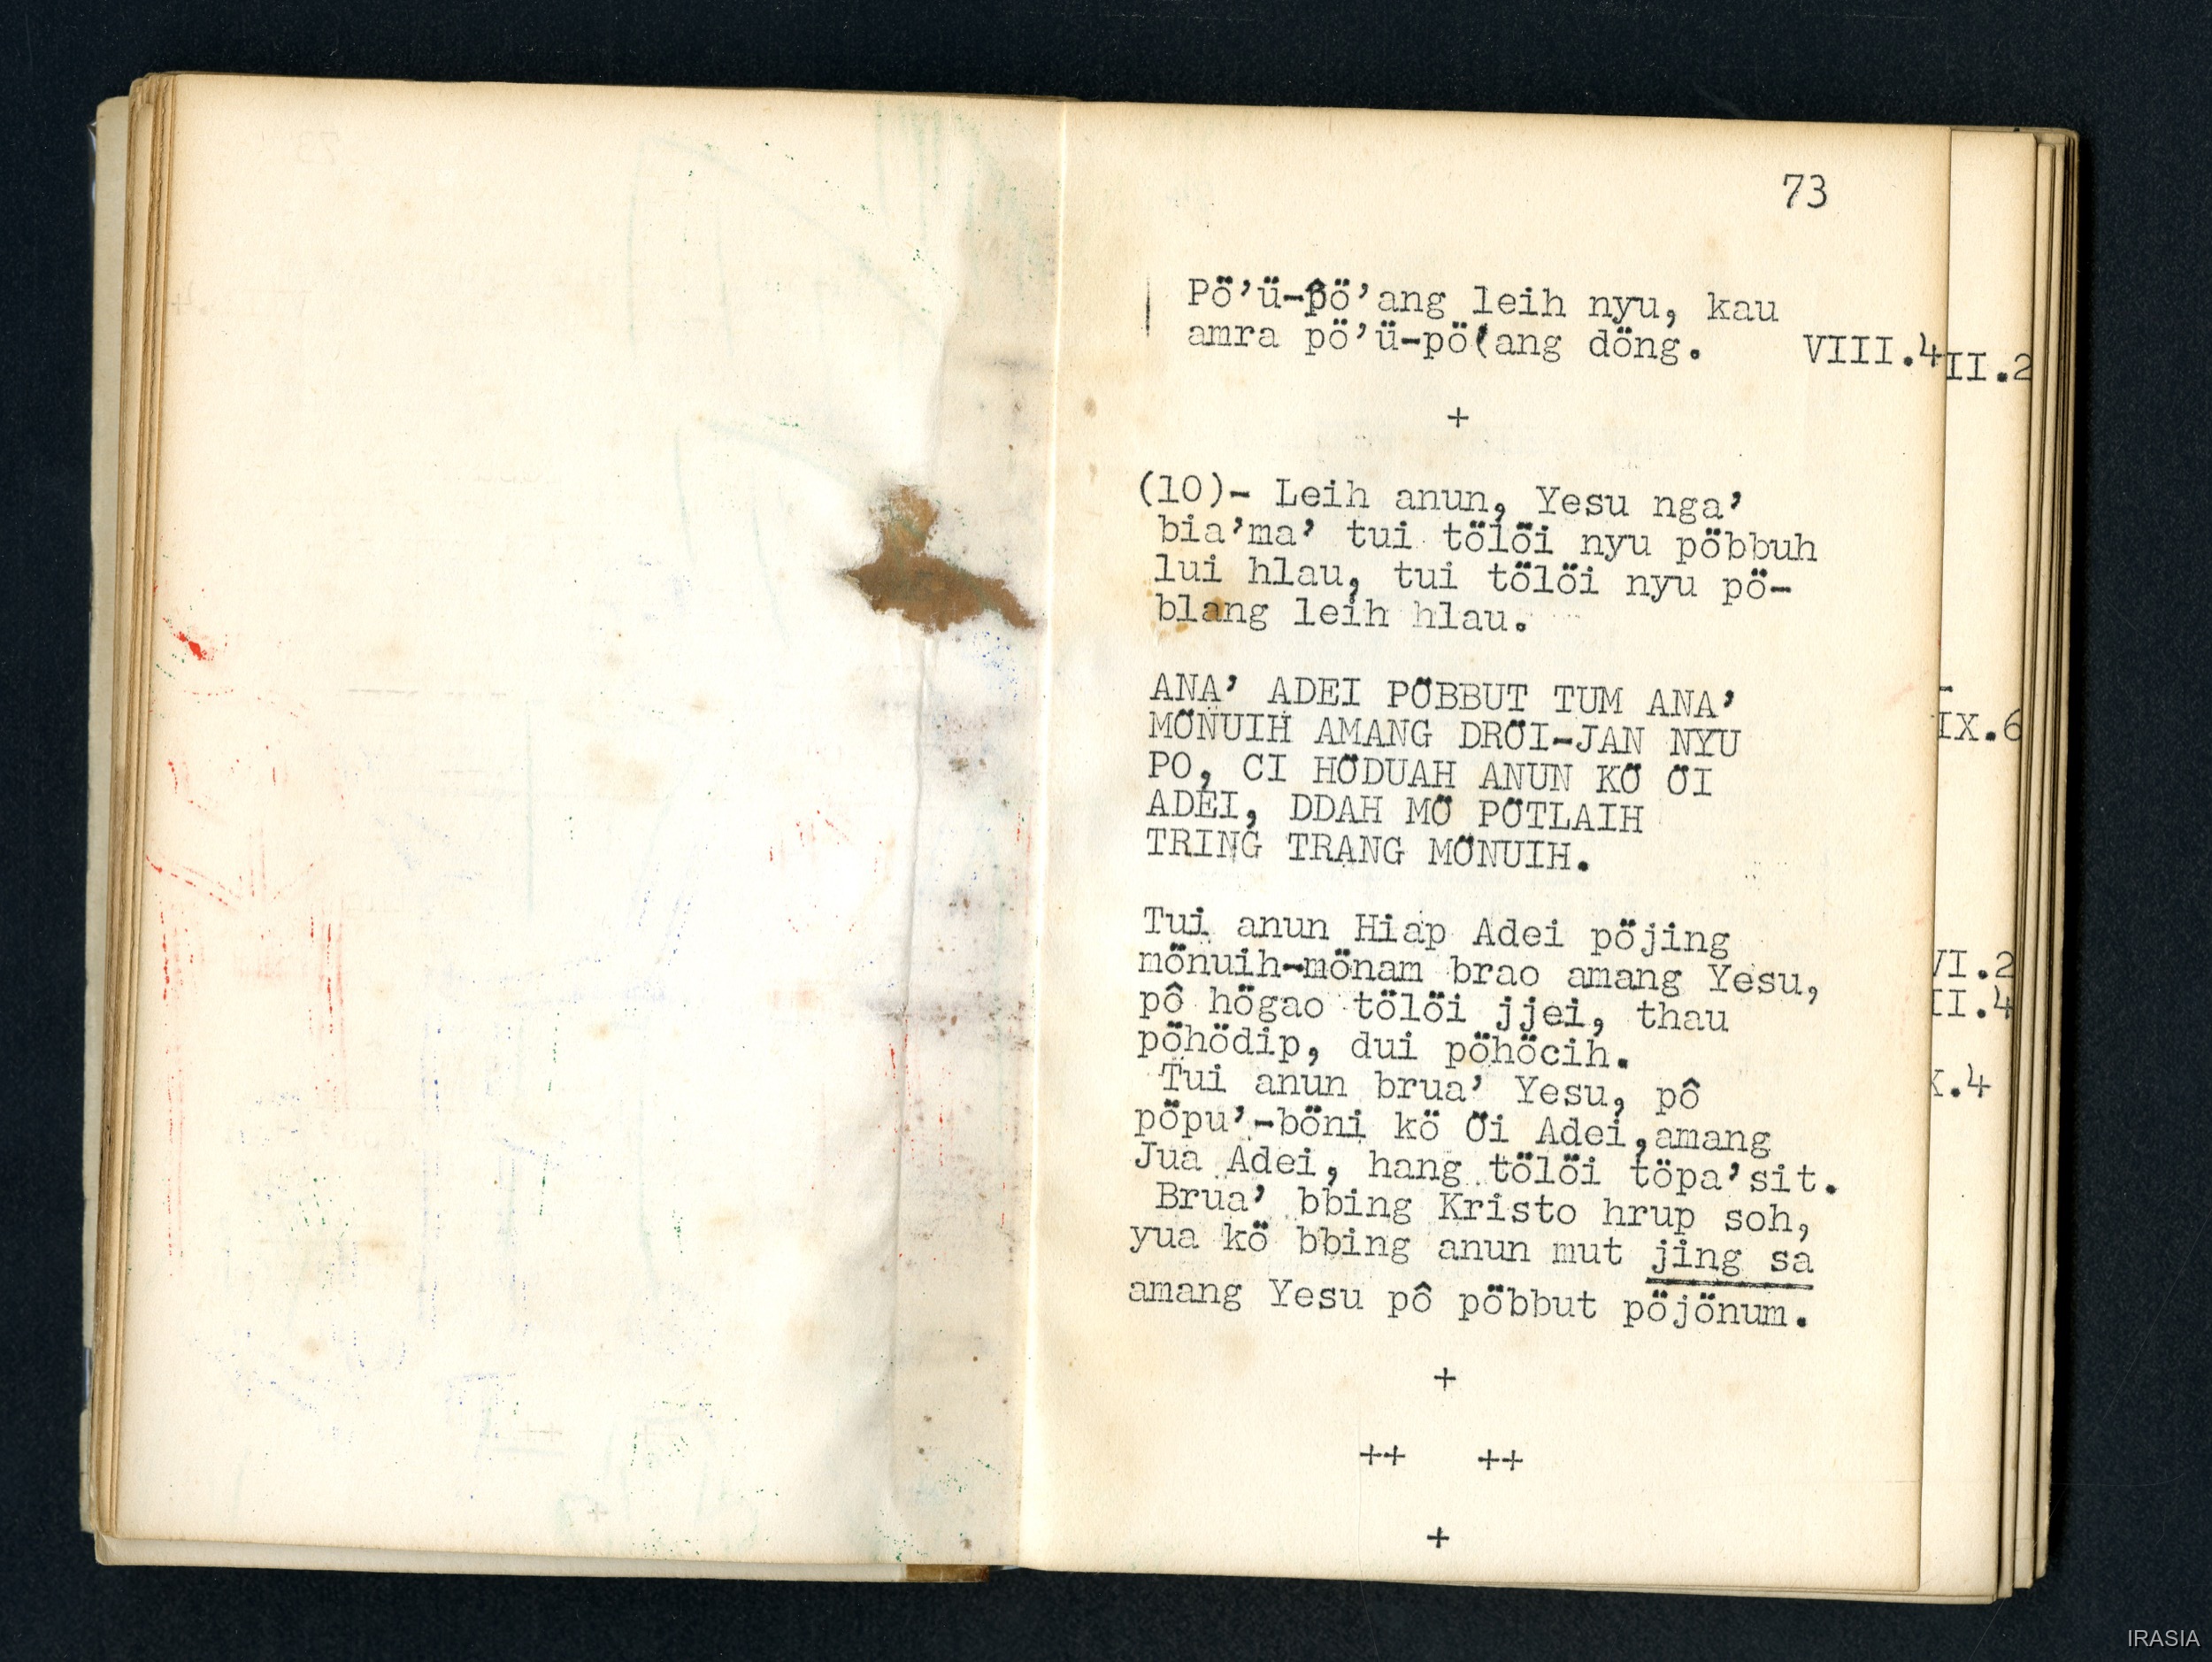 73
Pö’ü-pö’ang leih nyu, kau
amra pö’ü-pö(ang döng. VIII.4
II.2
+
(10)- Leih anun, Yesu nga’
bia’ma’ tui tölöi nyu pöbbuh
lui hlau, tui tölöi nyu pö-
blang leih hlau.
ANA’ ADEI PÖBBUT TUM ANA’
MÖNUIH AMANG DRÖI-JAN NYU
PO, CI HÖDUAH ANUN KÖ ÖI
ADEI, DDAH MÖ PÖTLAIH
TRING TRANG MÖNUIH.
-
IX.6
Tui anun Hiap Adei pöjing
mönuih-mönam brao amang Yesu,
pô högao tölöi jjei, thau
pöhödip, dui pöhöcih.
Tui anun brua’ Yesu, pô
pöpu’-böni kö Öi Adei,amang
Jua Adei, hang tölöi töpa’sit.
Brua’ bbing Kristo hrup soh,
yua kö bbing anun mut jing sa
amang Yesu pô pöbbut pöjönum.
VI.2
II.4
X.4
+
++ ++
+
IRASIA